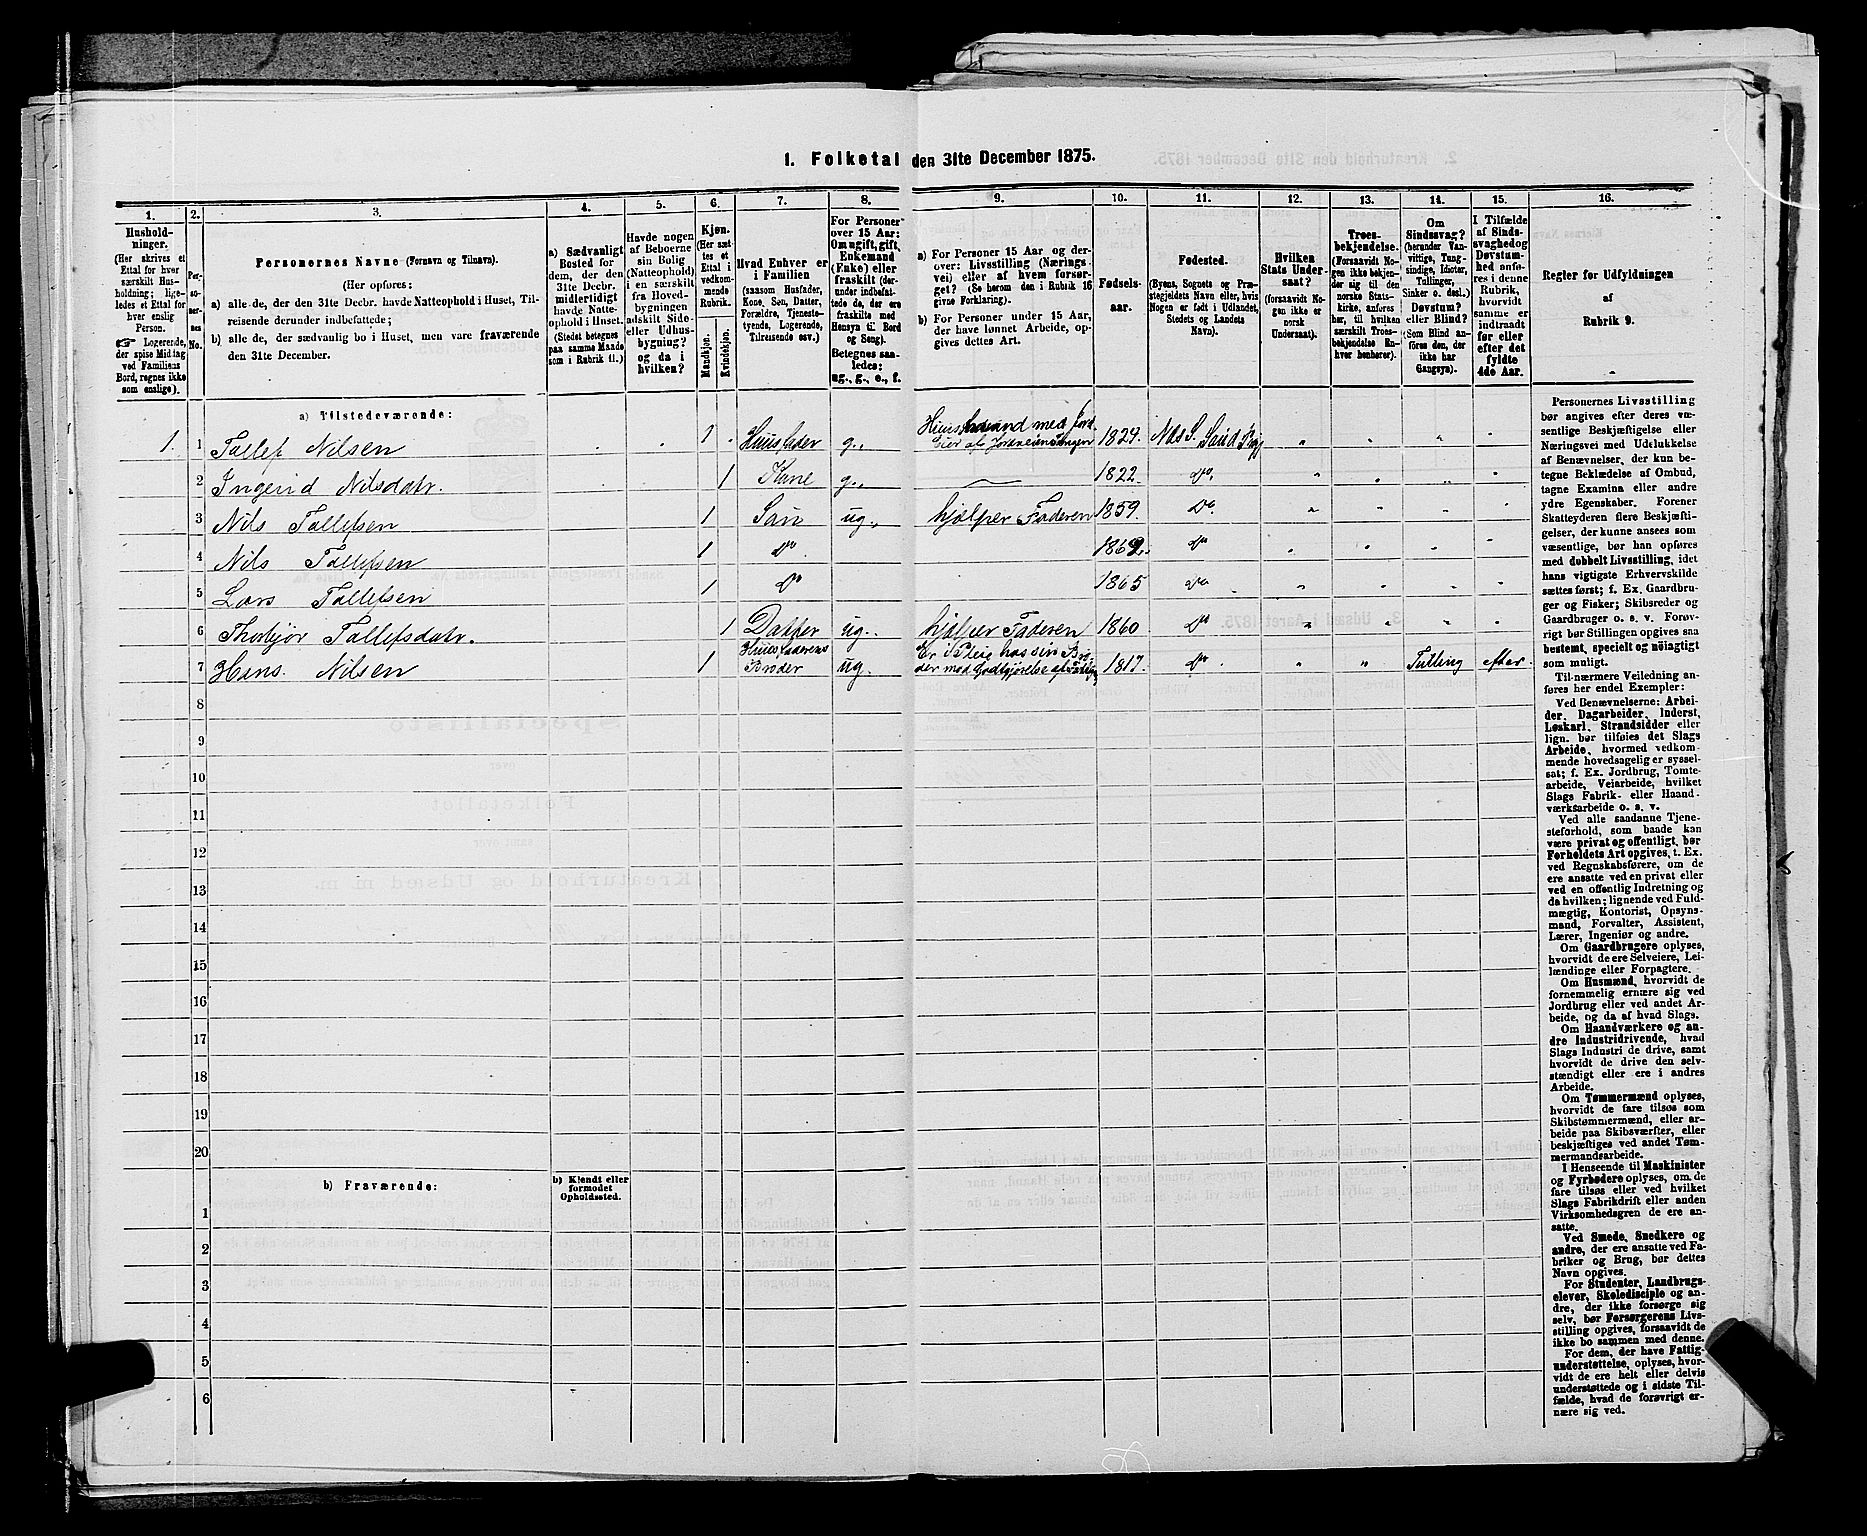 1. Folketal den 31te December 1875.
1. 2. 3. 4. 5. 6. 7. 8. 9. 10. 11. 12. 13. 14. 15. 16.
Hushold-
ninger.
(Her skrives et
Ettal for hver
særskilt Hus-
holdning; lige-
ledes et Ettal for
hver enslig
Person.
☞ Logerende,
der spise Middag
ved Familiens
Bord, regnes ikke
som enslige).
Per-
so-
ner-
nes
No.
Personernes Navne (Fornavn og Tilnavn).
(Her opføres:
a) alle de, der den 31te Decbr. havde Natteophold i Huset, Til-
reisende derunder indbefattede;
b) alle de, der sædvanlig bo i Huset, men vare fraværende
den 31te December.
a) Sædvanligt
Bosted for
dem, der den
31te Decbr.
midlertidigt
havde Natte-
ophold i Huset.
(Stedet betegnes
paa samme Maade
som i Rubrik 11.)
Havde nogen
af Beboerne
sin Bolig
(Natteophold)
i en særskilt
fra Hoved-
bygningen
adskilt Side-
eller Udhus-
bygning?
og da i
hvilken?
Kjøn.
(Her sæt-
tes et
Ettal i
vedkom-
mende
Rubrik.
Mandkjøn.
Kvindekjøn.
Hvad Enhver er
i Familien
(saasom Husfader,
Kone, Søn, Datter,
Forældre, Tjeneste-
tyende, Logerende,
Tilreisende osv.)
For Personer
over 15 Aar:
Om ugift, gift,
Enkemand
(Enke) eller
fraskilt (der-
under indbefat-
tede de, der ere
fraskilte med
Hensyn til Bord
og Seng).
Betegnes saa-
ledes:
ug., g., e., f.
a) For Personer 15 Aar og der-
over: Livsstilling (Nærings-
vei) eller af hvem forsør-
get? (Se herom den i Rubrik 16
givne Forklaring).
b) For Personer under 15 Aar,
der have lønnet Arbeide, op-
gives dettes Art.
Fødsels-
aar.
Fødested.
(Byens, Sognets og Præ-
stegjeldets Navn eller, hvis
Nogen er født i Udlandet,
Stedets og Landets
Navn).
Hvilken
Stats Under-
saat?
(forsaavidt No-
gen ikke er
norsk
Undersaat).
Troes-
bekjendelse.
(Forsaavidt No-
gen ikke bekjen-
der sig til den
norske Stats-
kirke, anføres
her, til hvilken
særskilt Troes-
bekjendelse En-
hver henhører).
Om
Sindssvag?
(herunder Van-
vittige, Tung-
sindige, Idioter,
Tullinger,
Sinker o. desl.)
Døvstum?
eller Blind?
(Som Blind an-
føres den, der
ikke har
Gangsyn).
I Tilfælde
af Sinds-
svaghed og
Døvstum-
hed anfø-
res i denne
Rubrik,
hvorvidt
samme er
indtraadt
før eller
efter det
fyldte
4de Aar.
Regler for Udfyldningen
af
Rubrik 9.
a) Tilstedeværende:
1. 1 Tallef Nilsen 1 Huusfader g.. 1829.
2 Ingerid Nilsdatr. 1 Kone g.. 1822. Do.
3 Nils Tallefsen 1 Søn ug.. hjælper Faderen 1859. Do.
4 Nils Tallefsen 1 Do. 1862. Do
5 Lars Tallefsen 1 Do 1865 Do
6 Thorbjør Tallefsdatr. 1 Datter ug.. hjælper Faderen 1860 Do
7 Hans Nilsen 1 Huusfaderens
Broder ug. 1817. Do Tulling efter.
8
9
10
11
12
13
14
15
16
17
18
19
20
b) Fraværende:
b) Kjendt eller
formodet
Opholdssted.
1
2
3
4
5
6
Personernes Livsstilling
bør angives efter deres væ-
sentlige Beskjæftigelse eller
Næringsvei med Udelukkelse
af Benævnelser, der kun be-
tegne Beklædelse af Ombud,
tagne Examina eller andre
ydre Egenskaber. Forener
Skatteyderen flere Beskjæfti-
gelser, der kunne ansees som
væsentlige, bør han opføres
med dobbelt Livsstilling, idet
hans vigtigste Erhvervskilde
sættes først; f. Ex. Gaardbru-
ger og Fisker; Skibsreder og
Gaardbruger o. s. v. Forøv-
rigt bør Stillingen opgives saa
bestemt, specielt og nöiagtigt
som muligt.
Til nærmere Veiledning an-
føres her endel Exempler:
Ved Benævnelserne: Arbei-
der, Dagarbeider, Inderst,
Løskarl, Strandsidder eller
lign. bør tilføies det Slags
Arbeide, hvormed vedkom-
mende hovedsagelig er syssel-
sat; f. Ex. Jordbrug, Tomte-
arbeide, Veiarbeide, hvilket
Slags Fabrik- eller Haand-
værksarbeide o. s. v.
Ved alle saadanne Tjene-
steforhold, som baade kan
være privat og offentligt, bør
Forholdets Art opgives, t. Ex.
ved Regnskabsførere, om de
ere ansatte ved en privat eller
ved en offentlig Indretning og
da hvilken; lignende ved Fuld-
mægtig, Kontorist, Opsyns-
mand, Forvalter, Assistent,
Lærer, Ingeniør og andre.
Om Gaardbrugere oplyses,
hvorvidt de ere Selveiere, Lei-
lændinge eller Forpagtere.
Om Husmænd, hvorvidt de
fornemmelig ernære sig ved
Jordbrug eller ved andet Ar-
beide, og da af hvad Slags.
Om Haandværkere og an-
dre Industridrivende, hvad
Slags Industri de drive, samt
hvorvidt de drive den selv-
stændigt eller ere i andres
Arbeide.
Om Tømmermænd oplyses,
hvorvidt de fare tilsøs som
Skibstømmermænd, eller ar-
beide paa Skibsværfter, eller
beskjæftiges ved andet Tøm-
mermandsarbeide.
I Henseende til Maskinister
og Fyrbødere oplyses, om de
fare tilsøs eller ved hvilket
Slags Fabrikdrift eller anden
Virksomhedsgren de ere an-
satte.
Ved Smede, Snedkere og
andre, der ere ansatte ved Fa-
briker og Brug, bør dettes
Navn opgives.
For Studenter, Landbrugs-
elever, Skoledisciple og an-
dre, der ikke forsørge sig
selv, bør Forsørgerens Livs-
stilling opgives, forsaavidt de
ikke bo sammen med denne.
For dem, der have Fattig-
understøttelse, oplyses, hvor-
vidt de ere helt eller delvis
understøttede og i sidste Til-
fælde, hvad de forøvrigt er-
nære sig ved.